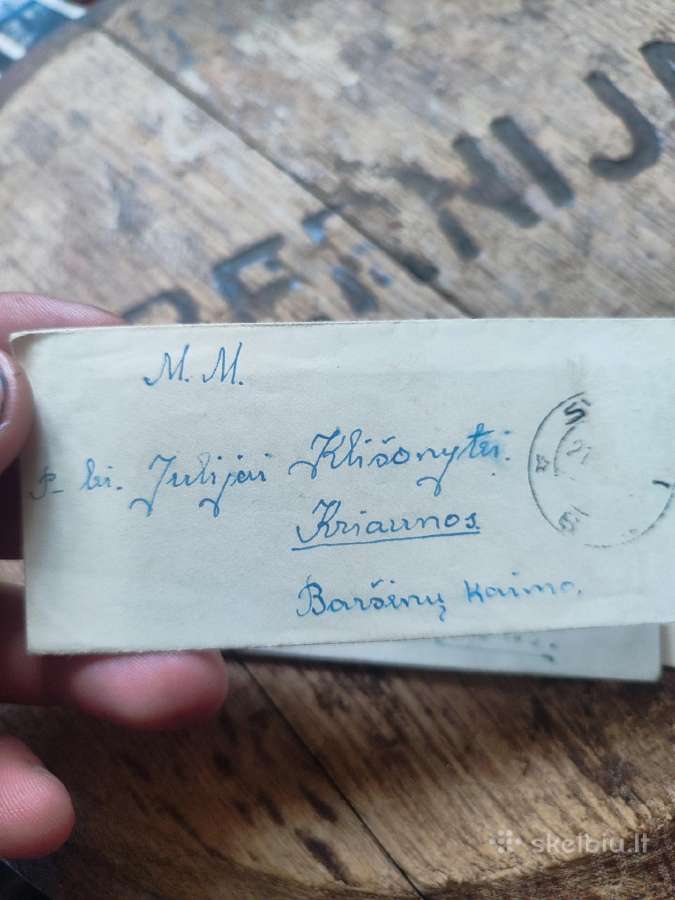 M. M.
P-lei. Julijai Klišonytei.
Kriaunos.
Baršėnų kaimo.
skelbiu.lt